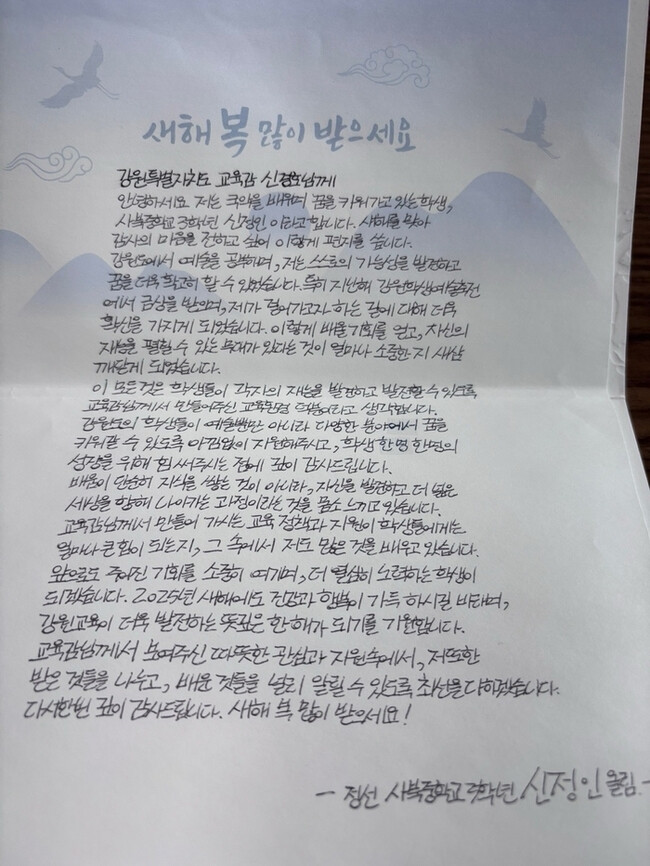 새해 복 많이 받으세요
강원특별자치도 교육감 신경호님께
안녕하세요 저는 국악을 배우며 꿈을 키워가고 있는 학생,
사북중학교 3학년 신정인 이라고 합니다. 새해를 맞아
감사의 마음을 전하고 싶어 이렇게 편지를 씁니다.
강원도에서 예술을 공부하며, 저는 스스로의 가능성을 발견하고
꿈을 더욱 확고히 할 수 있었습니다. 특히 지난해 강원학생예술축전
에서 금상을 받으며, 제가 걸어가고자 하는 길에 대해 더욱
확신을 가지게 되었습니다. 이렇게 배울 기회를 얻고, 자신의
재능을 펼칠 수 있는 무대가 있다는 것이 얼마나 소중한 지 새삼
깨닫게 되었습니다.
이 모든 것은 학생들이 각자의 재능을 발견하고 발전할 수 있도록
교육감님께서 만들어주신 교육환경 덕분이라고 생각합니다.
강원도의 학생들이 예술뿐만 아니라 다양한 분야에서 꿈을
키워갈 수 있도록 아낌없이 지원해주시고, 학생 한명 한명의
성장을 위해 힘 써주시는 점에 깊이 감사드립니다.
배움이 단순히 지식을 쌓는 것이 아니라, 자신을 발견하고 더 넓은
세상을 향해 나아가는 과정이라는 것을 몸소 느끼고 있습니다.
교육감님께서 만들어 가시는 교육 정책과 지원이 학생들에게는
얼마나 큰 힘이 되는지, 그 속에서 저도 많은 것을 배우고 있습니다.
앞으로도 주어진 기회를 소중히 여기며, 더 열심히 노력하는 학생이
되겠습니다. 2025년 새해에도 건강과 행복이 가득 하시길 바라며,
강원교육이 더욱 발전하는 뜻깊은 한 해가 되기를 기원합니다.
교육감님께서 보여주신 따뜻한 관심과 지원속에서, 저또한
받은 것들을 나누고, 배운 것들을 널리 알릴 수 있도록 최선을 다하겠습니다.
다시한번 깊이 감사드립니다. 새해 복 많이 받으세요!
- 정선 사북중학교 3학년 신정인 올림. -